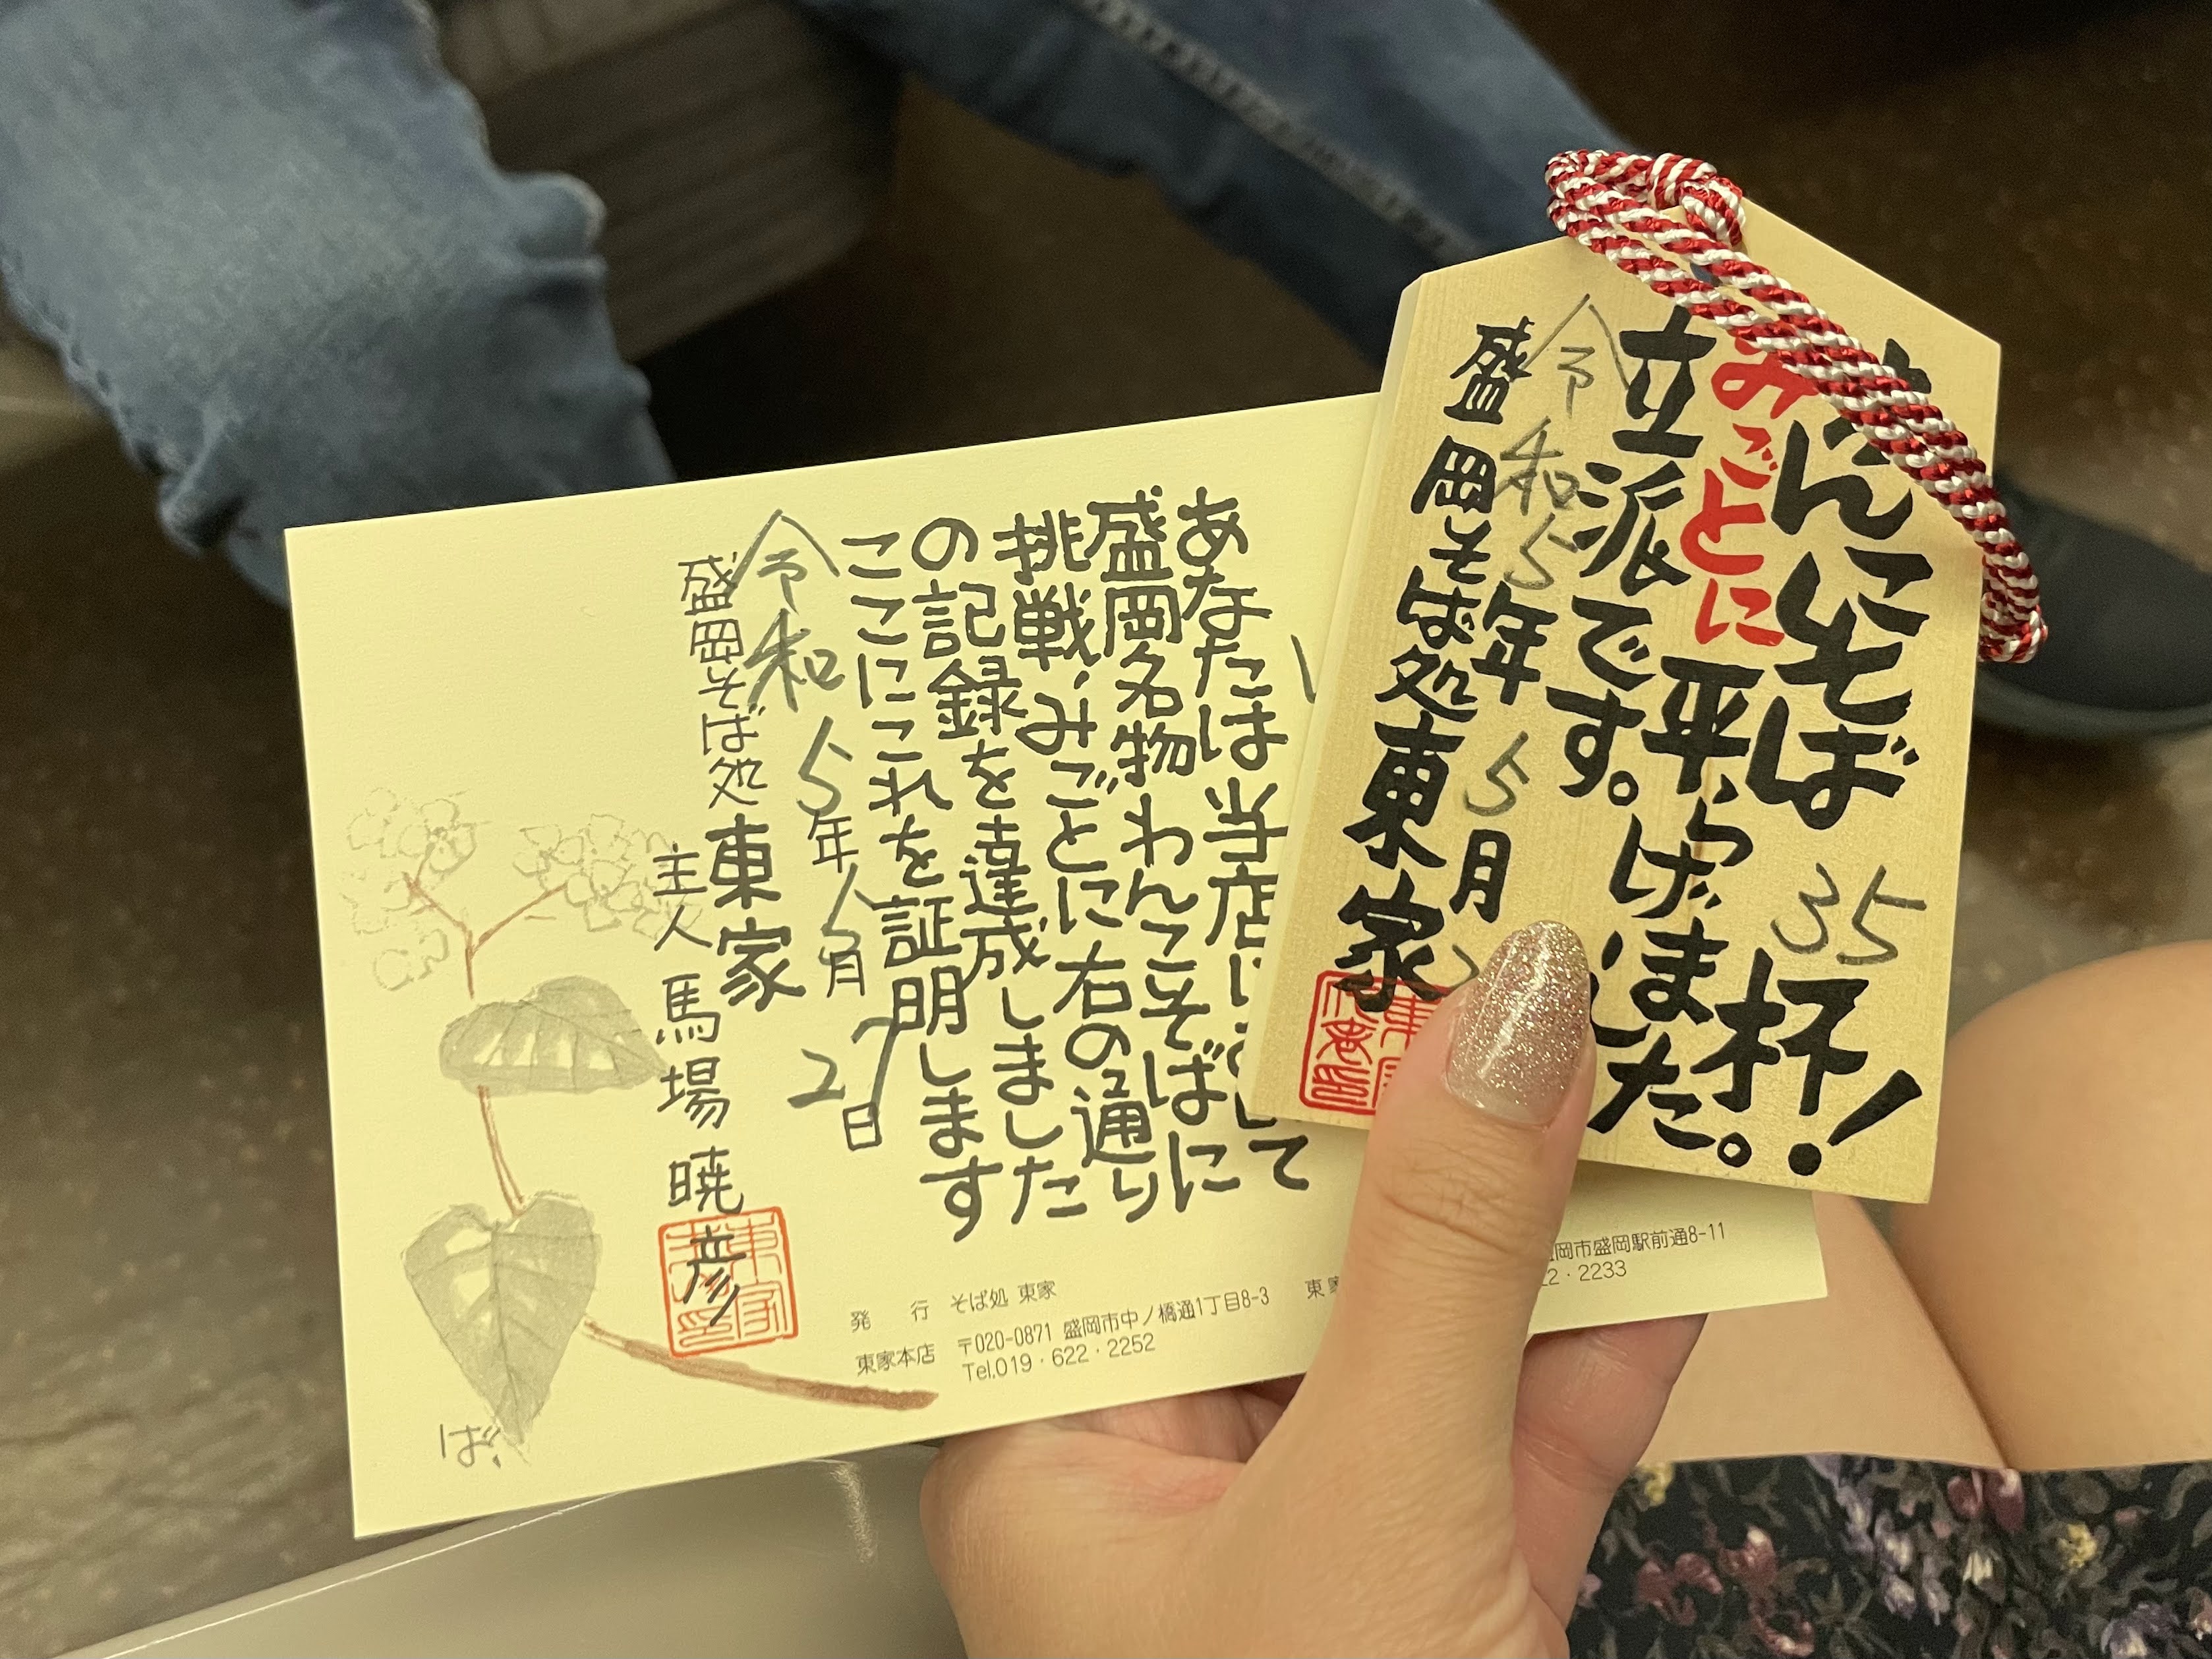 んこそば 35 杯!
みごとに平らげました。
立派です。
令和5年 5月
盛岡そば処 東家
あなたは当店に
て
盛岡名物わんこそばに
挑戦、みごとに右の通り
の記録を達成しました
ここにこれを証明します
令和 5年 5月 27日
盛岡そば処 東家
主人 馬場 暁彦
発 行 そば処 東家
東家本店 〒020-0871 盛岡市中ノ橋通1丁目8-3
Tel.019・622・2252
東家
岡市盛岡駅前通8-11
2・2233
ば